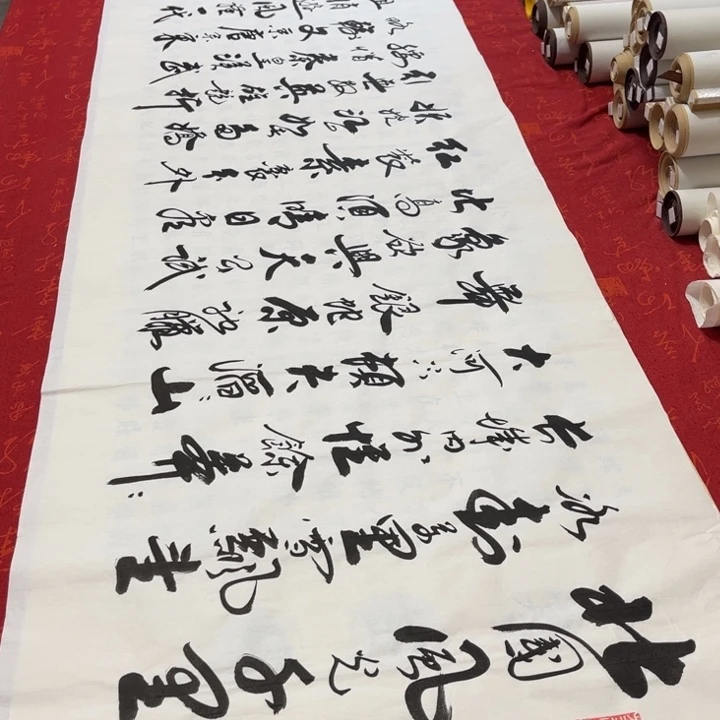 北國風光千里
冰封萬里雪飄望
長城內外惟餘莽々
大河上下頓失滔々山
舞銀蛇原馳蠟
象欲與天公試
比高須晴日看
紅裝素裹分外
嬌
引無數英雄競折
惜秦皇漢武
輸文采唐宗宋
風騷一代